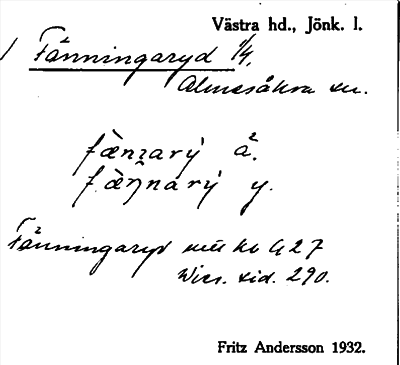 Västra hd., Jönk. l.
Fånningaryd 1/4.
Almesåkra sn.
fæ̀nɪarẏ å.
fæ̀ŋnarẏ y.
Fånningaryd mtl kb G 27
Wier. sid. 290.
Fritz Andersson 1932.